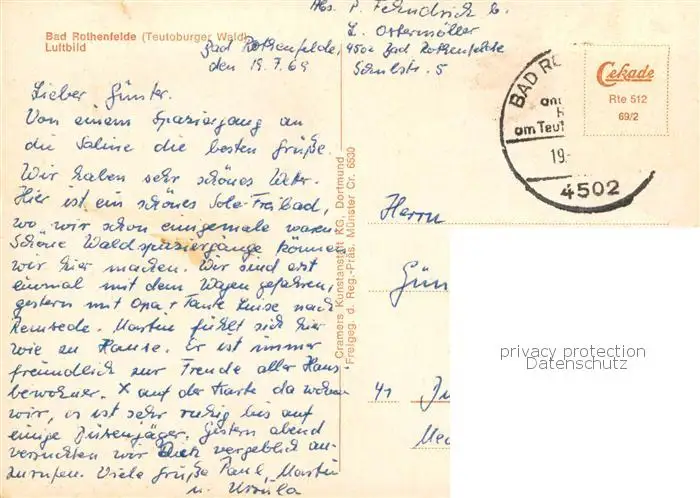 Bad Rothenfelde (Teutoburger Wald)
Luftbild
Abs. P. Fehndrich b.
L. Ostermöller
4502 Bad Rothenfelde
Schulstr. 5
Bad Rothenfelde,
den 19.7.69
Lieber Günter.
Von einem Spaziergang an
die Saline die besten Grüße.
Wir haben sehr schönes Wetter.
Hier ist ein schönes Sole-Freibad,
wo wir schon einigemale waren.
Schöne Waldspaziergänge können
wir hier machen. Wir sind erst
einmal mit dem Wagen gefahren,
gestern mit Opa + Tante Luise nach
Remsede. Martin fühlt sich hier
wie zu Hause. Er ist immer
freundlich zur Freude aller Haus-
bewohner. X auf der Karte da wohnen
wir, es ist sehr ruhig bis auf
einige Düsenjäger. Gestern abend
versuchten wir Dich vergeblich an-
zurufen. Viele Grüße Paul, Martin
u. Ursula
Cramers Kunstanstalt KG, Dortmund
Freigeg. d. Reg.-Präs. Münster Cr. 6530
BAD RO
am Teut
19.-
4502
Cekade
Rte 512
69/2
Herrn
Gün
41 Du
privacy protection
Datenschutz